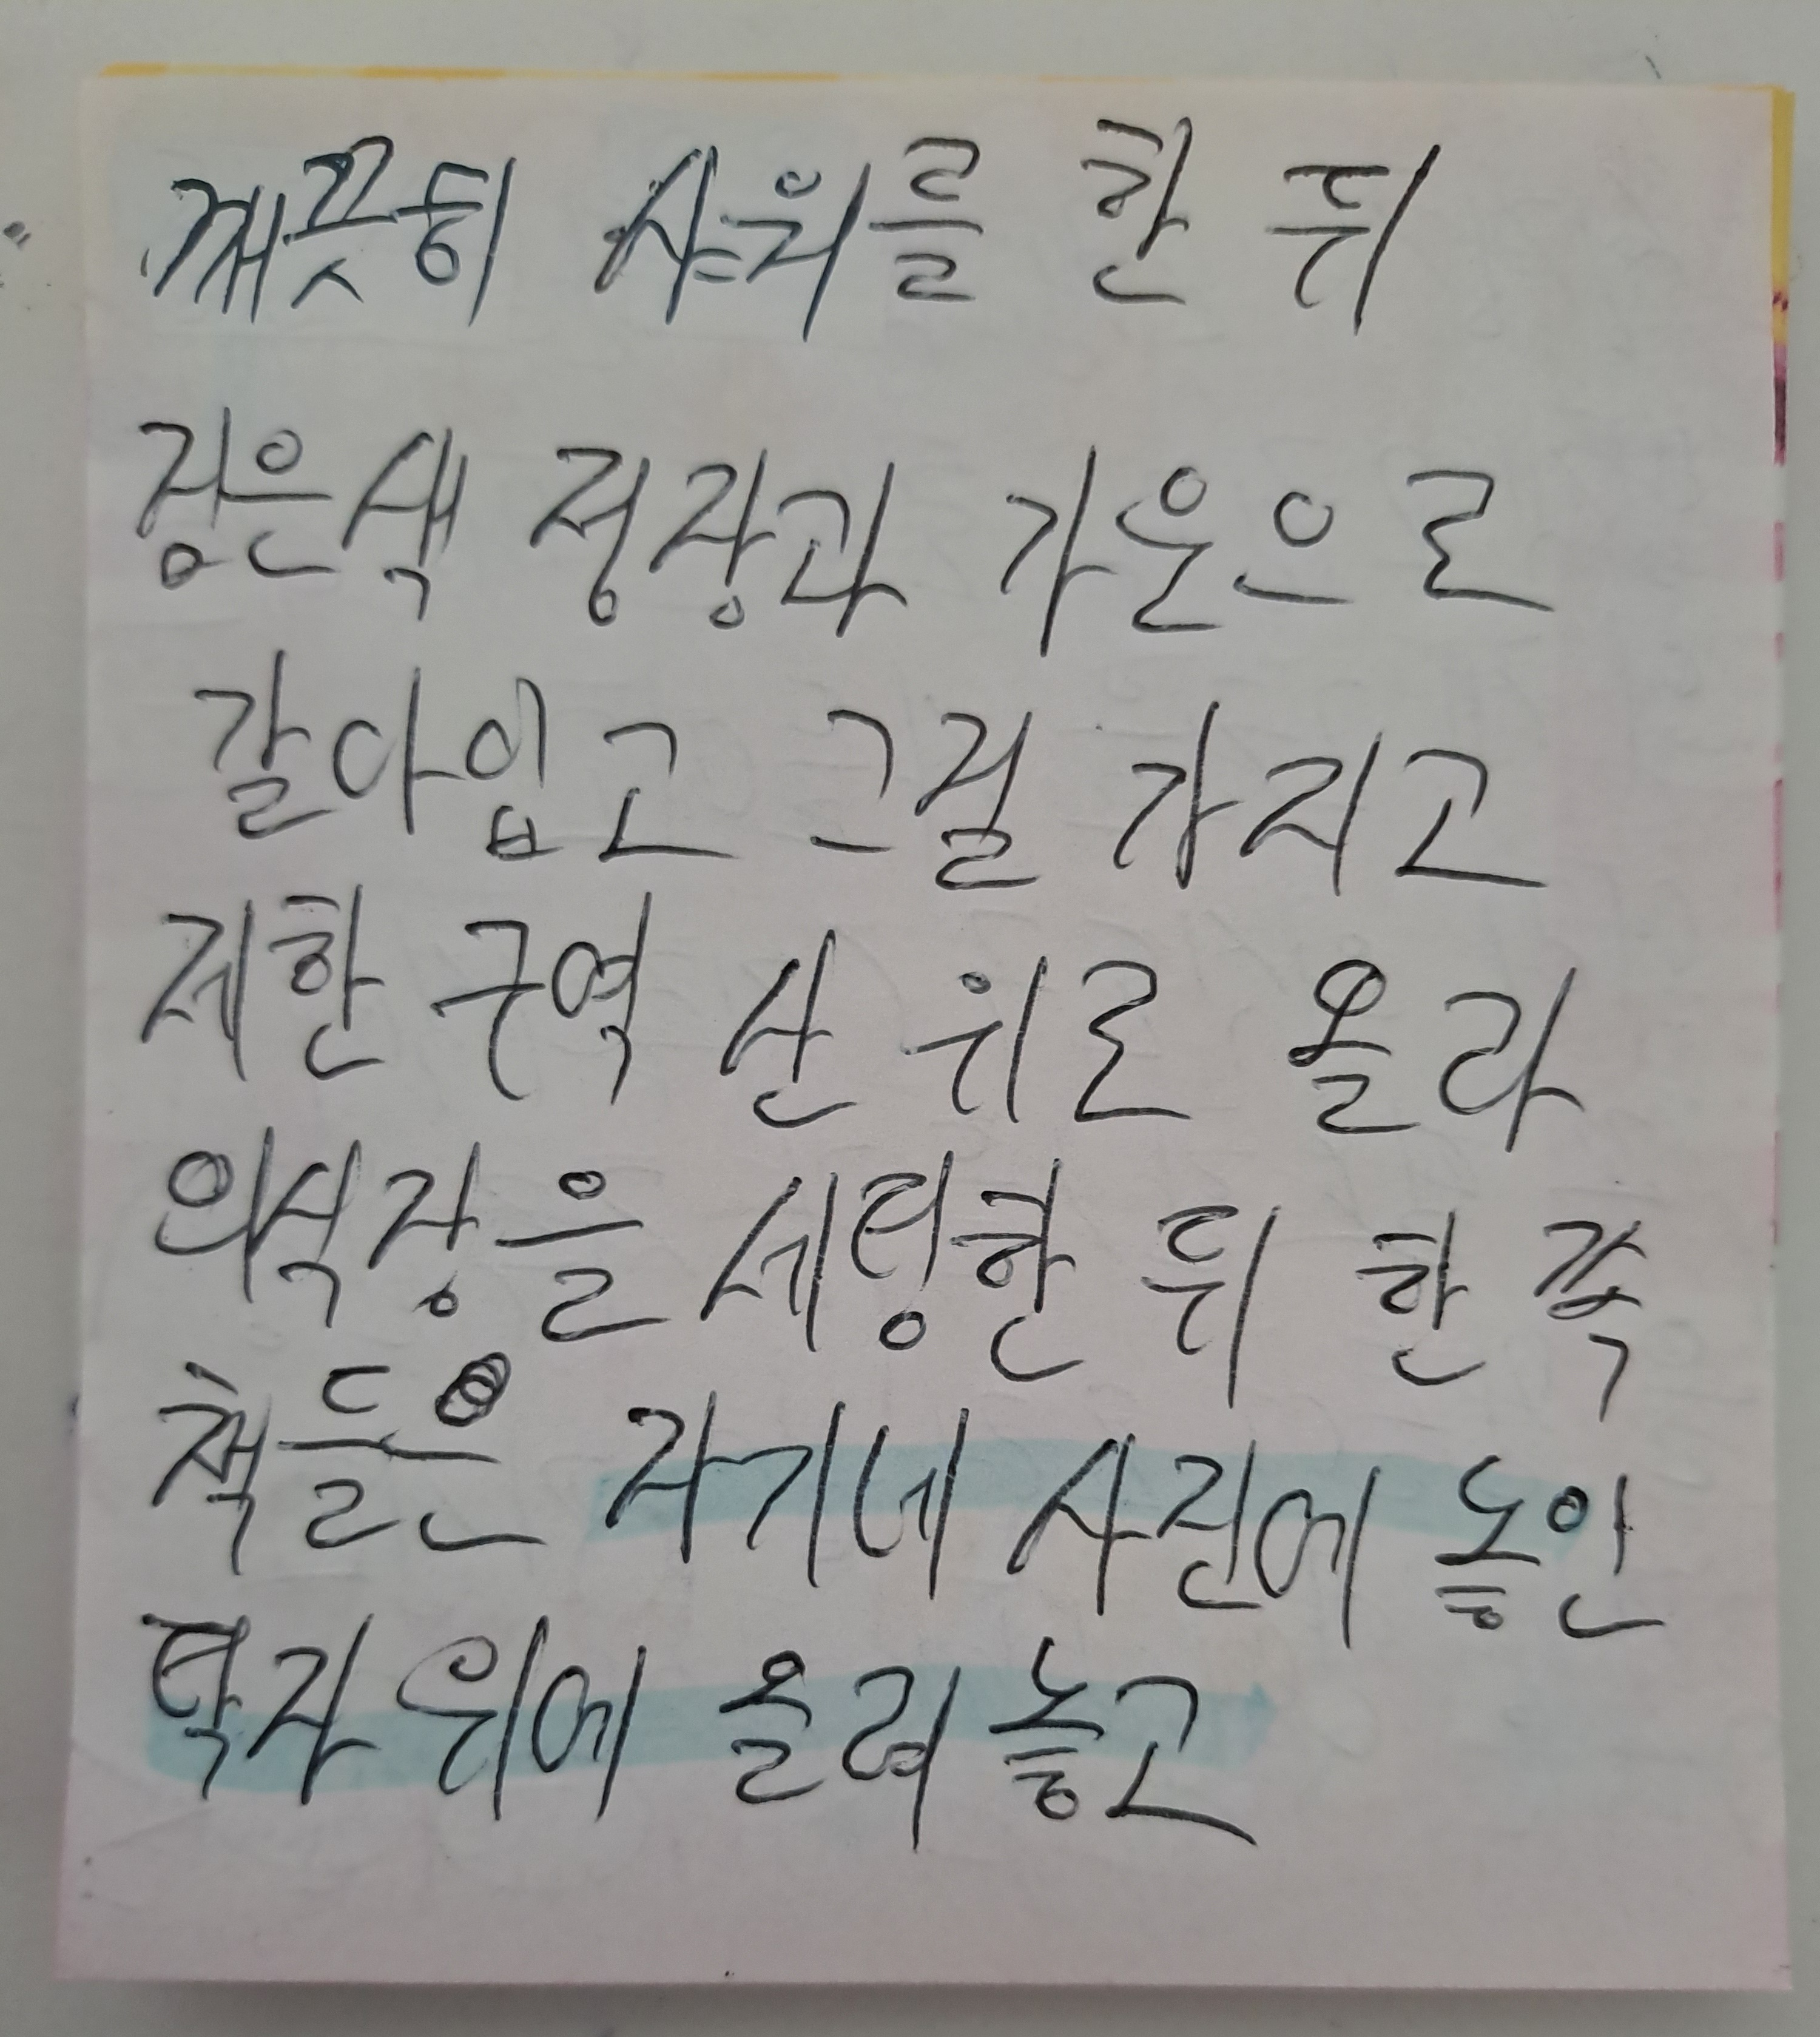 깨끗히 샤워를 한 뒤
검은색 정장과 가운으로
갈아입고 그걸 가지고
제한 구역 산 위로 올라
의식장을 세팅한 뒤 한 쪽
책들은 자기네 사전에 놓인
탁자 위에 올려 놓고